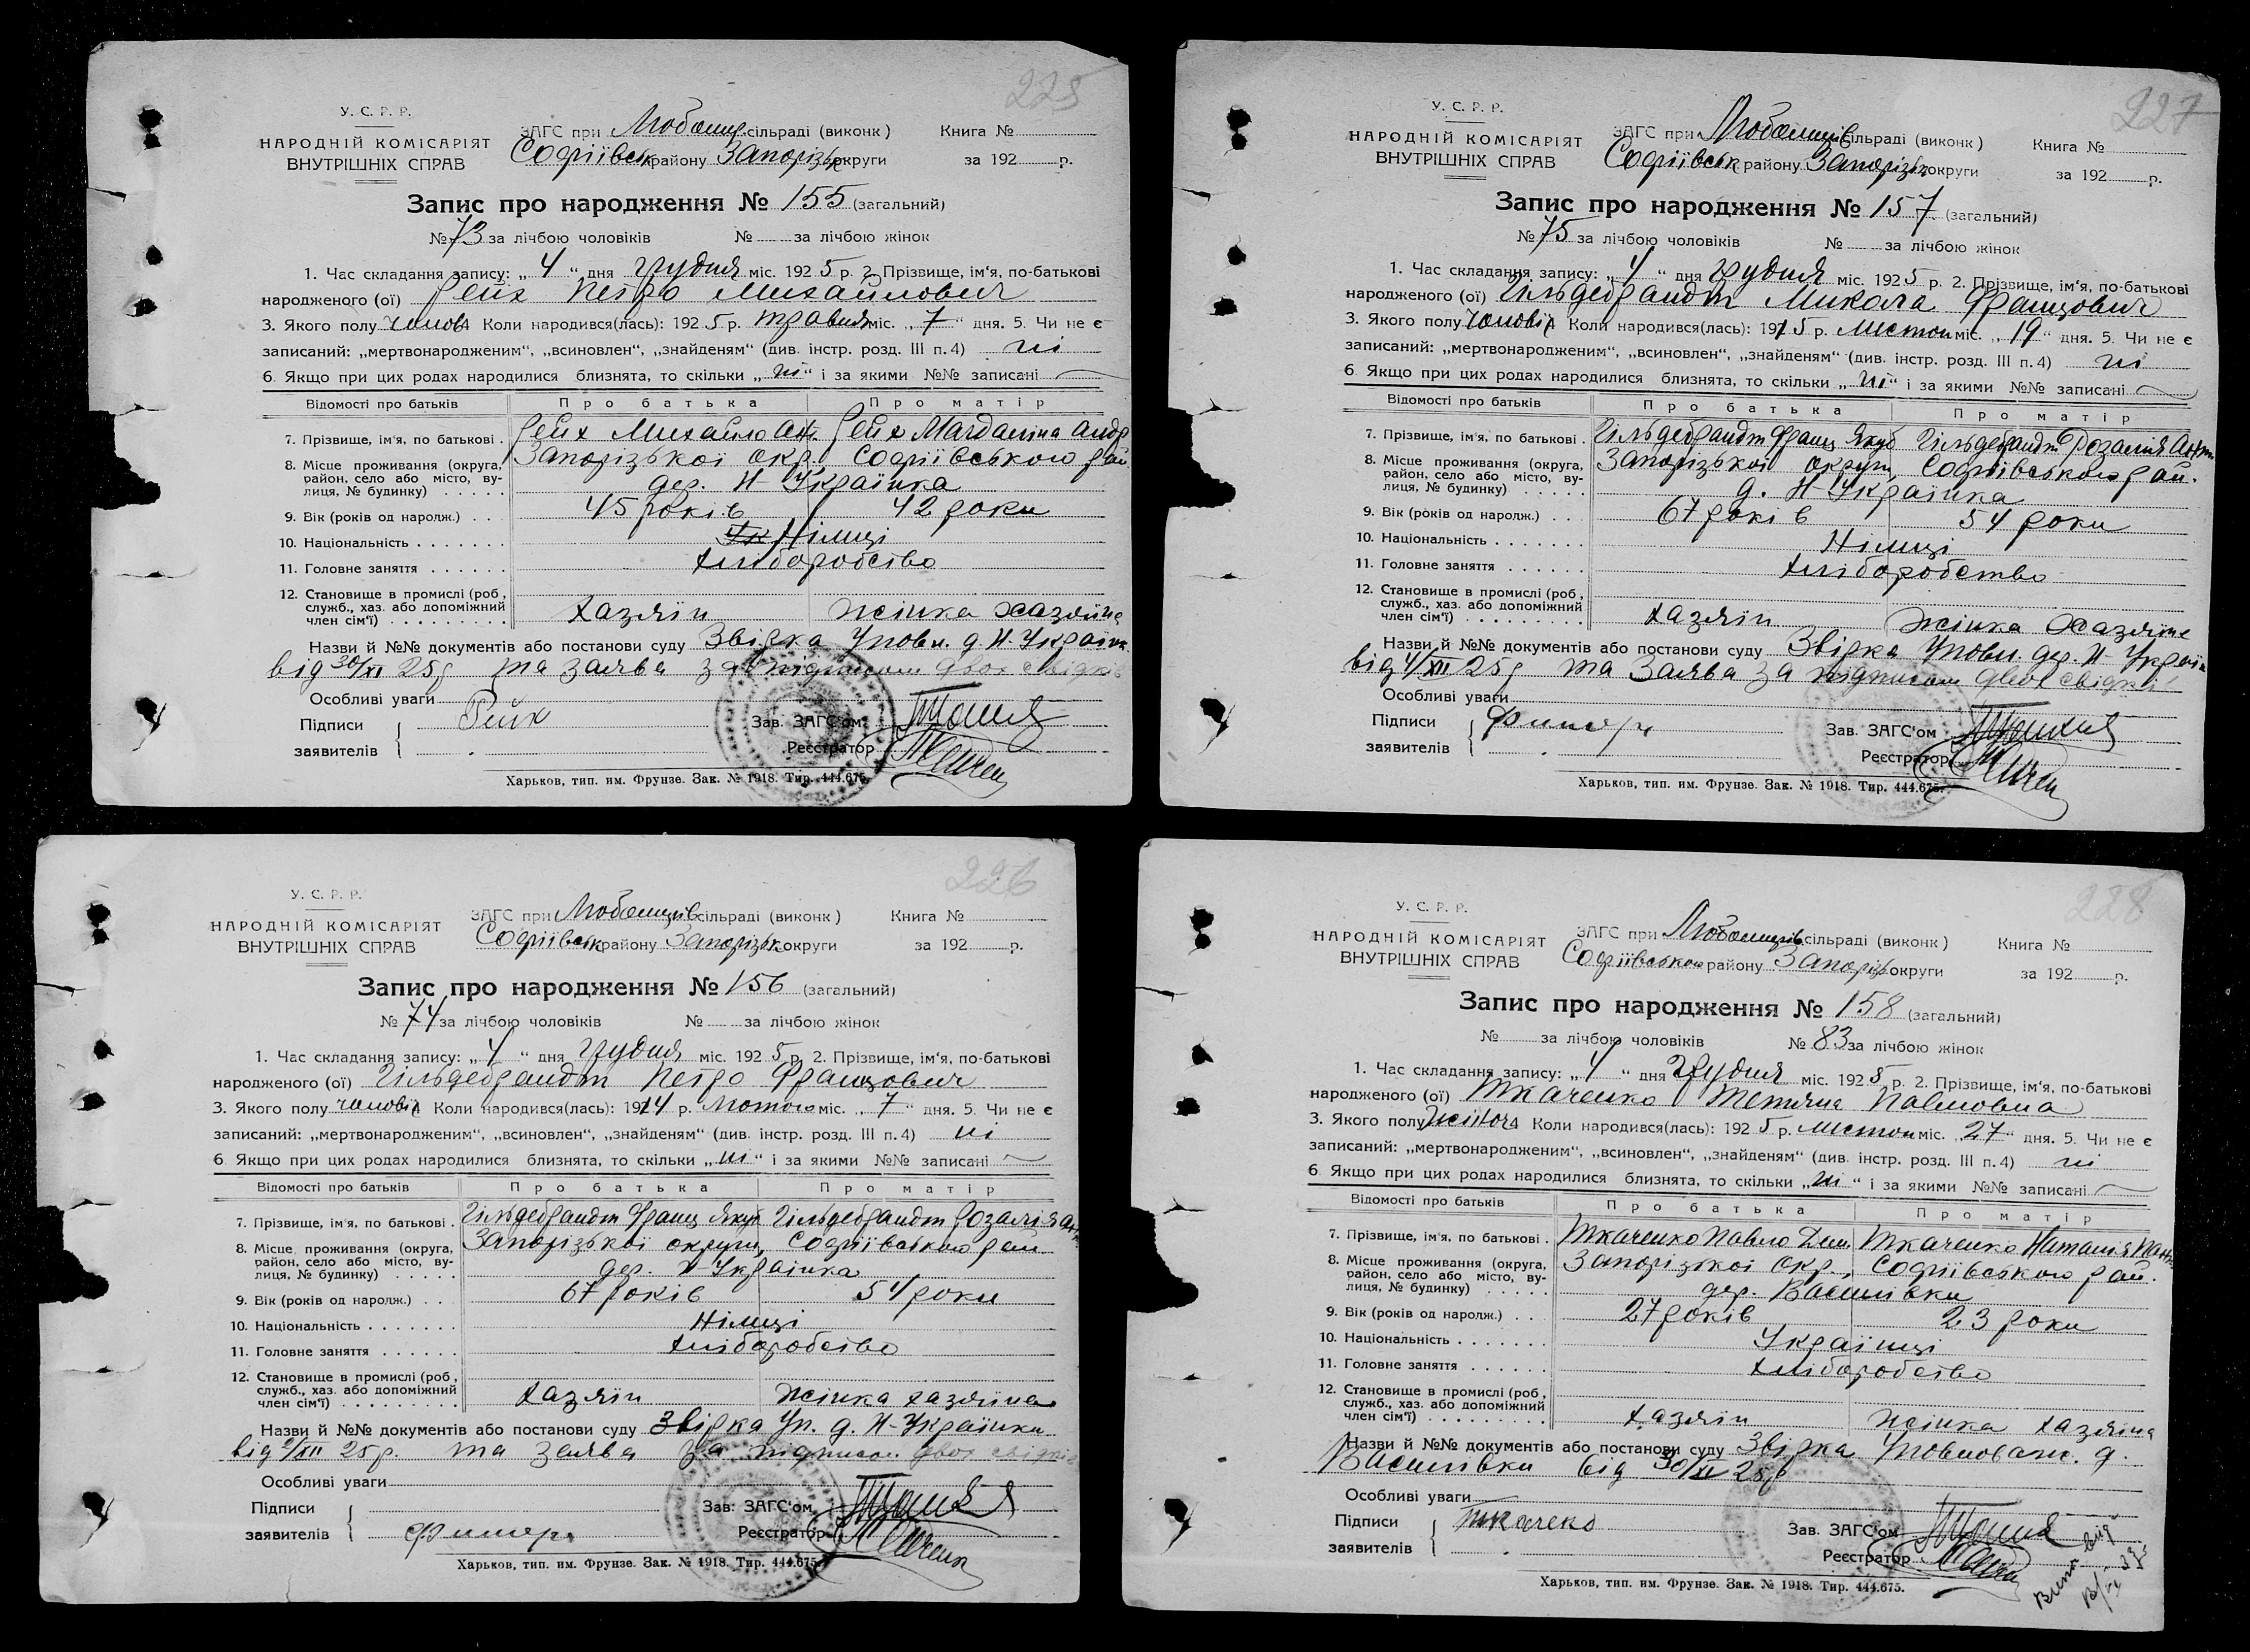 225
У. С. Р. Р.
НАРОДНІЙ КОМІСАРІЯТ
ВНУТРІШНІХ СПРАВ
ЗАГС при Любомирсільраді (виконк) Книга №
Софіївськ району Запорізьк округи за 192 р.
Запис про народження № 155 (загальний)
№ 73 за лічбою чоловіків № за лічбою жінок
1. Час складання запису: „ 4 “ дня грудня міс. 192 5 р. 2. Прізвище, ім'я, по-батькові
народженого (ої) Рейх Петро Михайлович
3. Якого полу чолов 4 Коли народився(лась): 192 5 р. травня міс. „ 7 “ дня. 5. Чи не є
записаний: „мертвонародженим“, „всиновлен“, „знайденям“ (див. інстр. розд. III п. 4) ні
6 Якщо при цих родах народилися близнята, то скільки „ ні “ і за якими №№ записані
Відомості про батьків Про батька Про матір
7. Прізвище, ім'я, по батькові . Рейх Михайло Ан. Рейх Магдалина Андр
8. Місце проживання (округа, район, село або місто, вулиця, № будинку) Запорізької окр. Софіївського рай
дер. Н-Українка
9. Вік (років од народж.) 45 років 42 роки
10. Національність Німці
11. Головне заняття хліборобство
12. Становище в промислі (роб, служб., хаз. або допоміжний член сім'ї) хазяїн жінка хазяїна
Назви й №№ документів або постанови суду Звірка Уповн. д. Н-Українк
від 30/XI 25 р та заява за підписом двох свідків
Особливі уваги
Підписи Рейх Зав. ЗАГС'ом
заявителів Реєстратор
Харьков, тип. им. Фрунзе. Зак. № 1918. Тир. 444.675.
227
У. С. Р. Р.
НАРОДНІЙ КОМІСАРІЯТ
ВНУТРІШНІХ СПРАВ
ЗАГС при Любомирів сільраді (виконк) Книга №
Софіївськ району Запорізьк округи за 192 р.
Запис про народження № 157 (загальний)
№ 75 за лічбою чоловіків № за лічбою жінок
1. Час складання запису: „ 4 “ дня грудня міс. 192 5 р. 2. Прізвище, ім'я, по-батькові
народженого (ої) Гільдебрандт Микола Францович
3. Якого полу чоловіч Коли народився(лась): 1915 р. Листоп міс. „ 19 “ дня. 5. Чи не є
записаний: „мертвонародженим“, „всиновлен“, „знайденям“ (див. інстр. розд. III п. 4) ні
6 Якщо при цих родах народилися близнята, то скільки „ ні “ і за якими №№ записані
Відомості про батьків Про батька Про матір
7. Прізвище, ім'я, по батькові . Гільдебрандт Франц Якуб Гільдебрандт Розалія Антн
8. Місце проживання (округа, район, село або місто, вулиця, № будинку) Запорізької округи, Софіївського рай.
д. Н-Українка
9. Вік (років од народж.) 67 років 54 роки
10. Національність Німці
11. Головне заняття хліборобство
12. Становище в промислі (роб, служб., хаз. або допоміжний член сім'ї) хазяїн жінка хазяїна
Назви й №№ документів або постанови суду Звірка Уповн. дер. Н-Україн
від 4/XII 25 р та Заява за підписом двох свідків
Особливі уваги
Підписи Фишер Зав. ЗАГС'ом
заявителів Реєстратор
Харьков, тип. им. Фрунзе. Зак. № 1918. Тир. 444.675.
226
У. С. Р. Р.
НАРОДНІЙ КОМІСАРІЯТ
ВНУТРІШНІХ СПРАВ
ЗАГС при Любомирів сільраді (виконк) Книга №
Софіївськ району Запорізьк округи за 192 р.
Запис про народження № 156 (загальний)
№ 74 за лічбою чоловіків № за лічбою жінок
1. Час складання запису: „ 4 “ дня грудня міс. 192 5 р. 2. Прізвище, ім'я, по-батькові
народженого (ої) Гільдебрандт Петро Францович
3. Якого полу чоловіч Коли народився(лась): 1914 р. Лютого міс. „ 7 “ дня. 5. Чи не є
записаний: „мертвонародженим“, „всиновлен“, „знайденям“ (див. інстр. розд. III п. 4) ні
6 Якщо при цих родах народилися близнята, то скільки „ ні “ і за якими №№ записані
Відомості про батьків Про батька Про матір
7. Прізвище, ім'я, по батькові . Гільдебрандт Франц Якуб Гільдебрандт Розалія Ант
8. Місце проживання (округа, район, село або місто, вулиця, № будинку) Запорізької округи, Софіївського рай
дер. Н-Українка
9. Вік (років од народж.) 67 років 54 роки
10. Національність Німці
11. Головне заняття хліборобство
12. Становище в промислі (роб, служб., хаз. або допоміжний член сім'ї) хазяїн жінка хазяїна
Назви й №№ документів або постанови суду Звірка Уп. д. Н-Українки
від 2/XII 25 р. та заява за підписом двох свідків
Особливі уваги
Підписи Зав. ЗАГС'ом
заявителів Фишер Реєстратор
Харьков, тип. им. Фрунзе. Зак. № 1918. Тир. 444.675.
228
У. С. Р. Р.
НАРОДНІЙ КОМІСАРІЯТ
ВНУТРІШНІХ СПРАВ
ЗАГС при Любомирів сільраді (виконк) Книга №
Софіївського району Запоріз округи за 192 р.
Запис про народження № 158 (загальний)
№ за лічбою чоловіків № 83 за лічбою жінок
1. Час складання запису: „ 4 “ дня Грудня міс. 192 5 р. 2. Прізвище, ім'я, по-батькові
народженого (ої) Ткаченко Тетяна Павловна
3. Якого полу жіноч 4 Коли народився(лась): 192 5 р. Листоп міс. „ 27 “ дня. 5. Чи не є
записаний: „мертвонародженим“, „всиновлен“, „знайденям“ (див. інстр. розд. III п. 4) ні
6 Якщо при цих родах народилися близнята, то скільки „ ні “ і за якими №№ записані
Відомості про батьків Про батька Про матір
7. Прізвище, ім'я, по батькові . Ткаченко Павло Дем Ткаченко Наталія Пант
8. Місце проживання (округа, район, село або місто, вулиця, № будинку) Запорізької окр., Софіївського рай.
дер. Василівки
9. Вік (років од народж.) 27 років 23 роки
10. Національність Українці
11. Головне заняття хліборобство
12. Становище в промислі (роб, служб., хаз. або допоміжний член сім'ї) хазяїн жінка хазяїна
Назви й №№ документів або постанови суду Звірка Уповноваж. д.
Василівки від 30/XI 25 р
Особливі уваги
Підписи Ткачеко Зав. ЗАГС'ом
заявителів Реєстратор
Харьков, тип. им. Фрунзе. Зак. № 1918. Тир. 444.675.